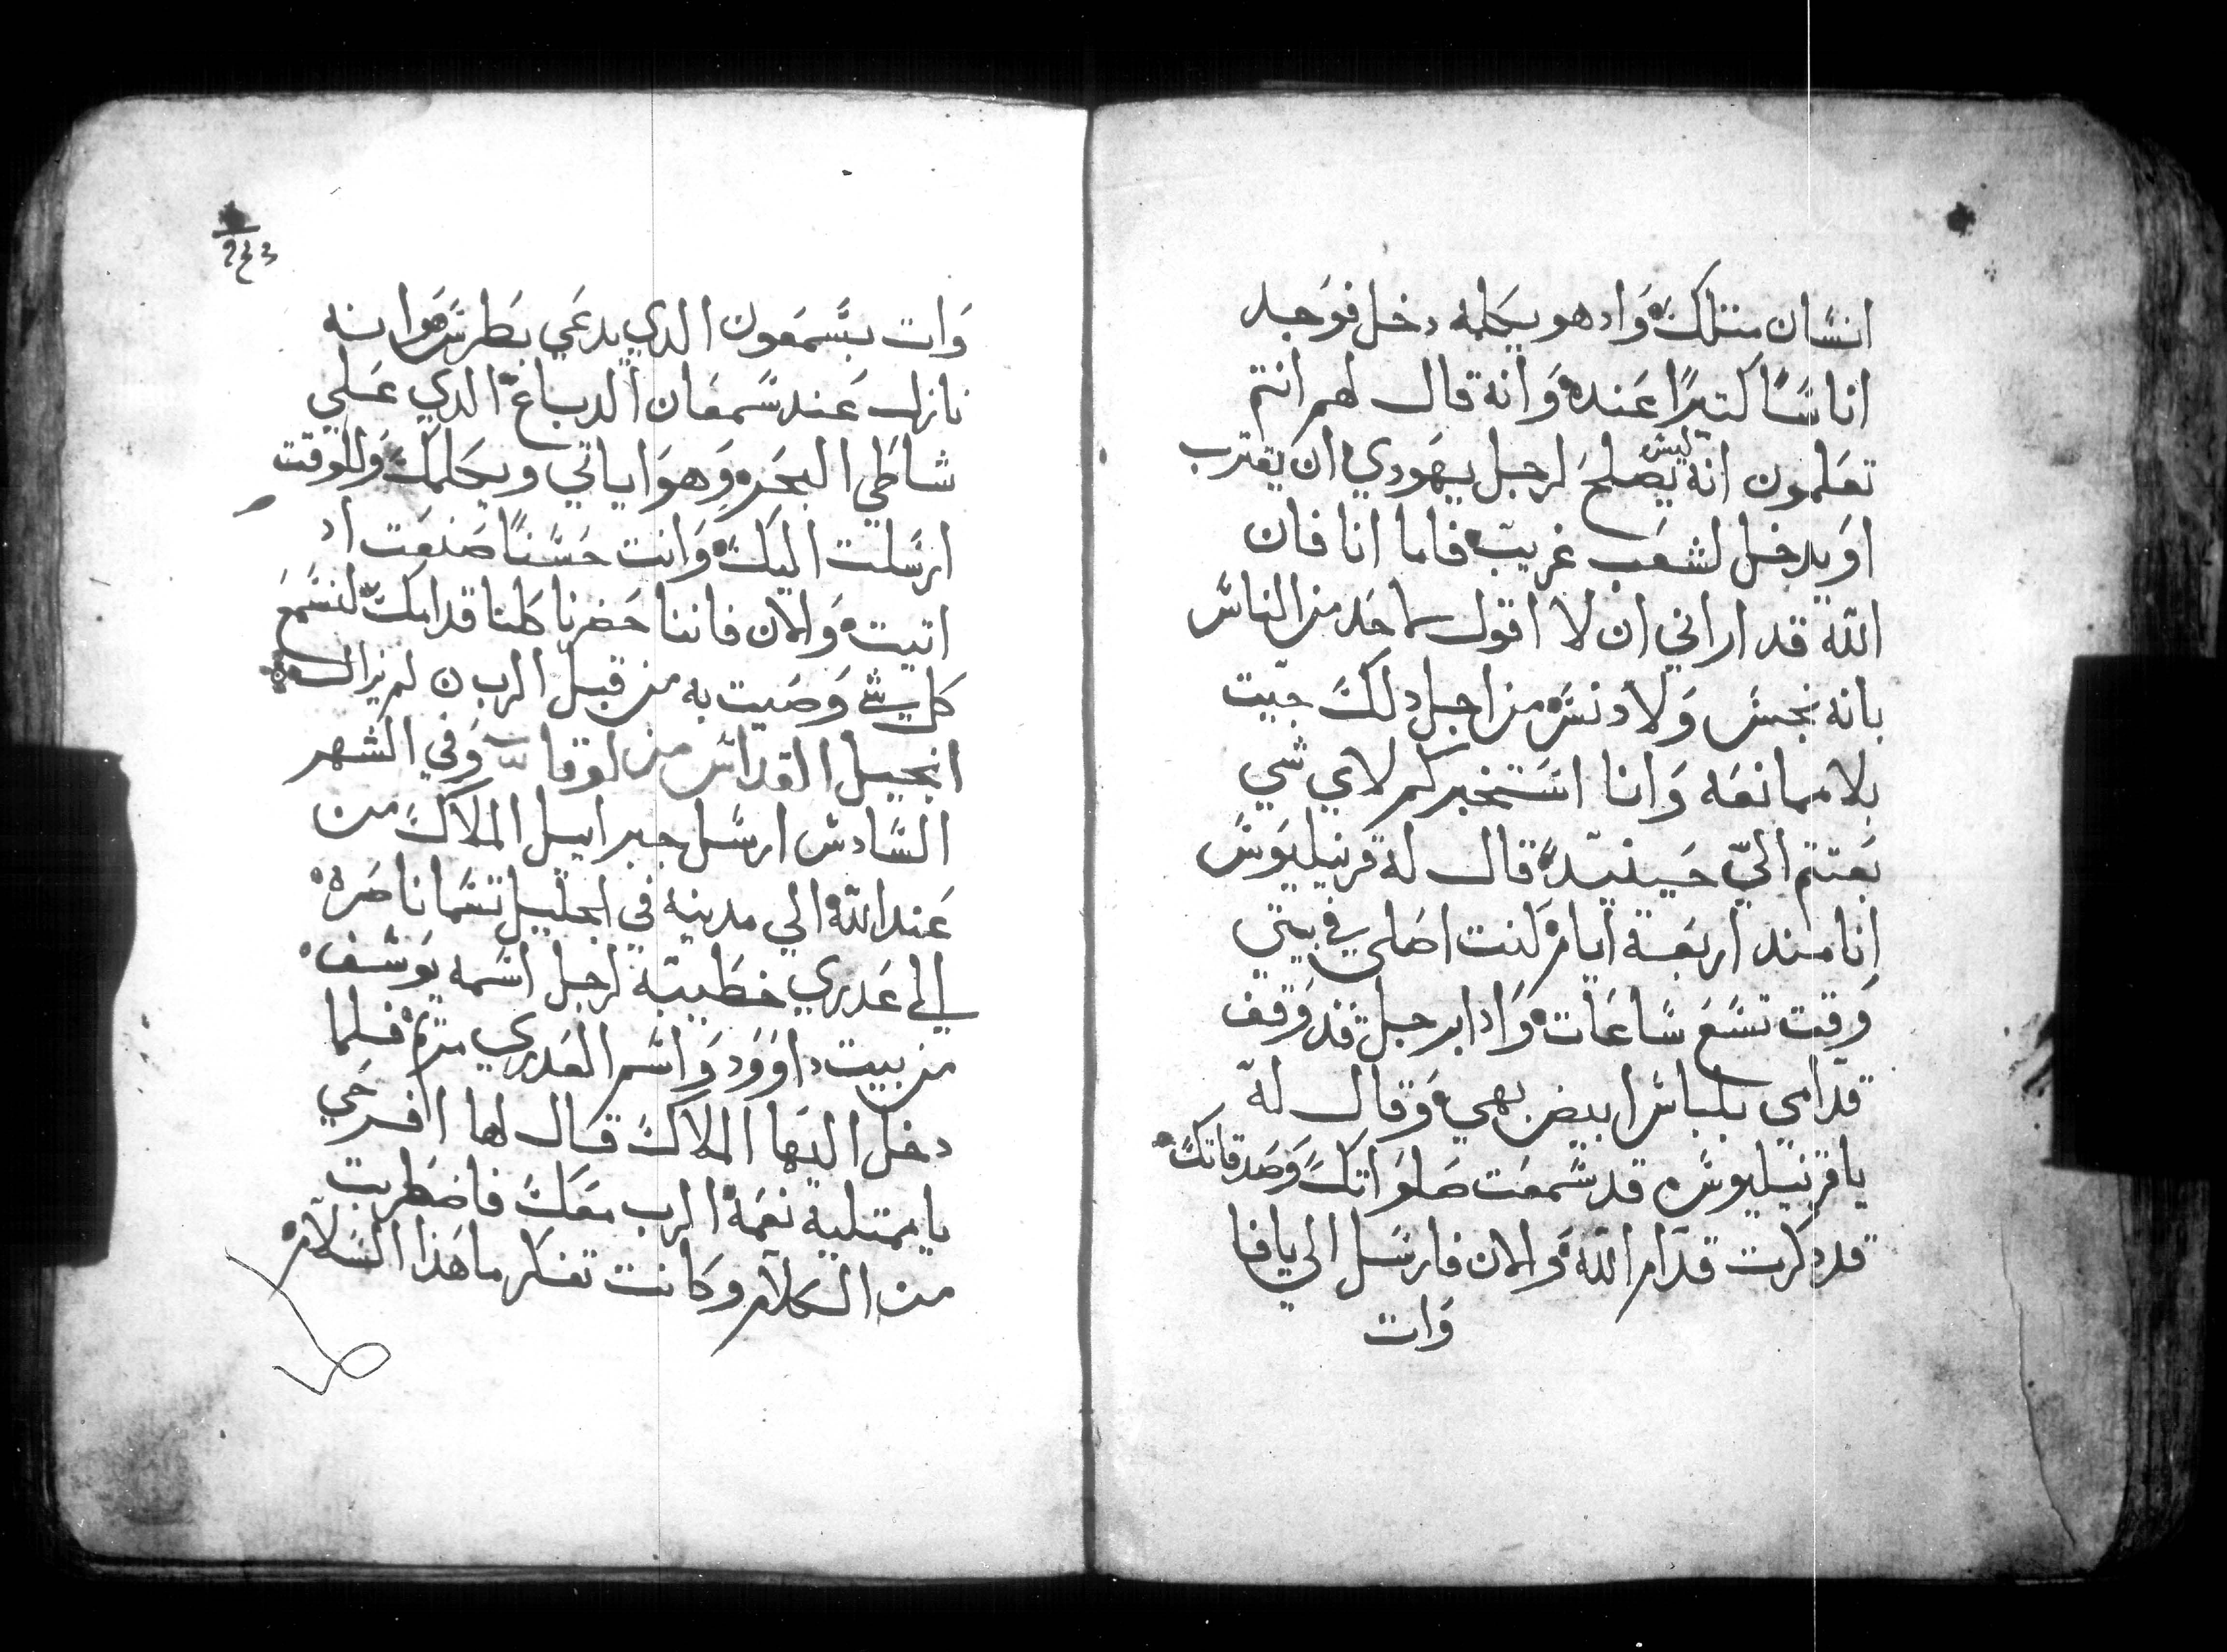 انسان مثلك واد هو يكلمه دخل فوجد
اناسًا كتيرًا عنده وانه قال لهم انتم
تعلمون انه ليس يصلح لرجل يهودي ان يقترب
او يدخل لشعب غريب فاما انا فان
الله قد اراني ان لا اقول لاحد من الناس
بانه نجس ولا دنس من اجل دلك جيت
بلا ممانعه وانا استخبركم لاي شي
بعتتم اليّ حينيد قال له قرنيليوس
انا مند اربعة ايام كنت اصلي في بيتي
وقت تسع ساعات وادا برجل قد وقف
قدامي بلباس ابيض بهي وقال له
يا قرنيليوس قد سمعت صلواتك وصدقاتك
قد دكرت قدام الله والان فارسل الي يافا
وات
٢٤٣
وات بسمعون الدي يدعي بطرس هوانه
نازل عند سمعان الدباغ الدي علي
شاطي البحر وهو اياتي ويكلمك وللوقت
ارسلت اليك وانت حسنًا صنعت اد
اتيت والان فاننا حضرنا كلنا قدامك لنسمع
كل شي وصيت به من قبل الرب ن لم يزال
انجيل القداس من لوقا وفي الشهر
السادس ارسل جبراييل الملاك من
عند الله الي مدينه في الجليل تسما ناصره
الي عدري خطيبة لرجل اسمه يوسف
من بيت داوود واسم العدري مريم فلما
دخل اليها الملاك قال لها افرحي
يا ممتلية نعمه الرب معك فاضطربت
من الكلام وكانت تفكر ما هذا السلام